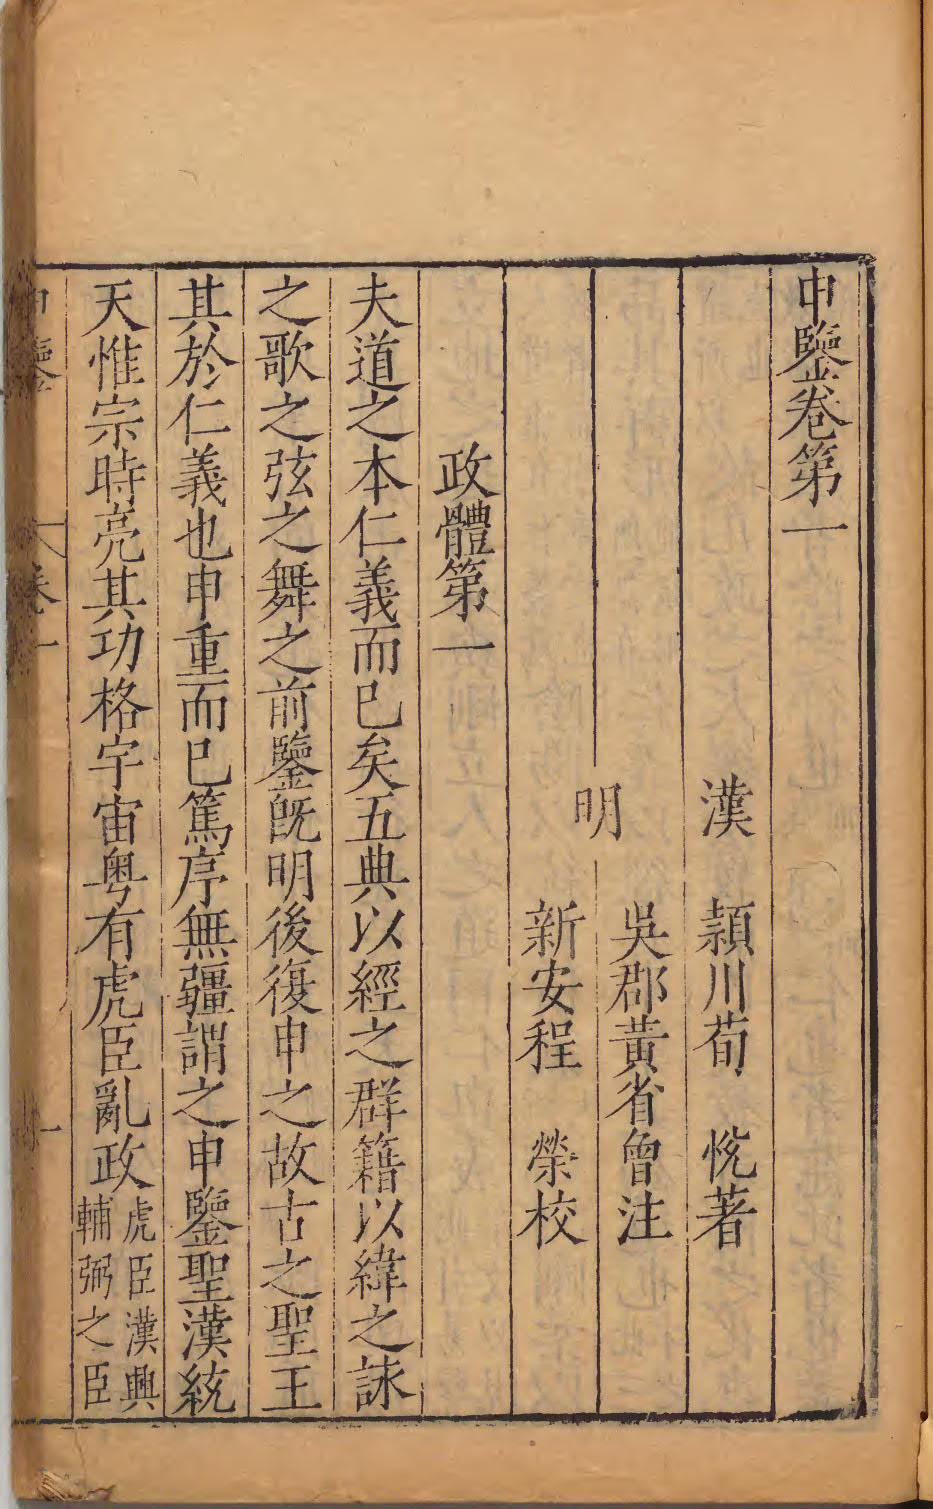 申鑒卷第一
漢 頴川荀 悅著
明 吳郡黃省曾注
新安程 榮校
政體第一
夫道之本仁義而已矣五典以經之群籍以緯之詠
之歌之弦之舞之前鑒旣明後復申之故古之聖王
其於仁義也申重而已篤序無疆謂之申鑒聖漢統
天惟宗時亮其功格宇宙粤有虎臣亂政虎臣漢興
輔弼之臣
申鑒 卷一 一